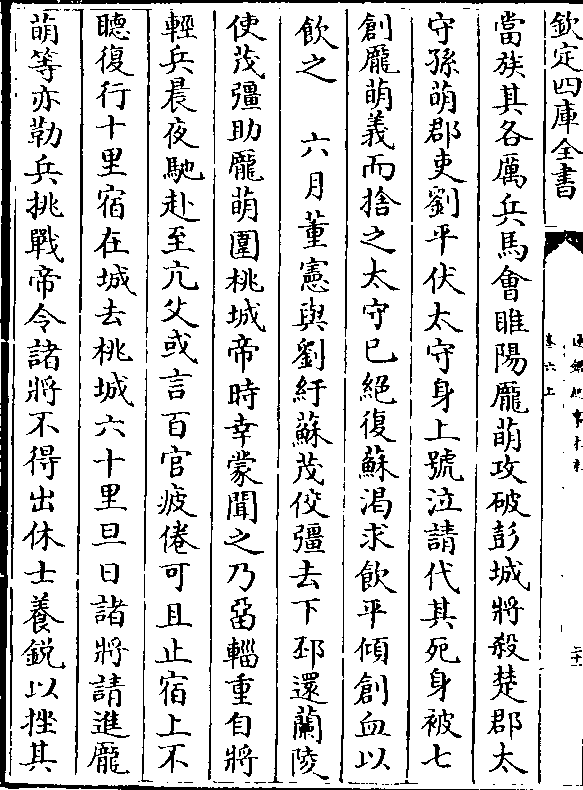 欽定四庫全書
當族其各厲兵馬會睢陽龎萌攻破彭城將殺楚郡太
守孫萌郡吏劉平伏太守身上號泣請代其死身被七
創龎萌義而捨之太守已絶復蘇渴求飲平傾創血以
飲之　六月董憲與劉紆蘇茂佼彊去下邳還蘭陵
使茂彊助龎萌圍桃城帝時幸蒙聞之乃畱輜重自將
輕兵晨夜馳赴至亢父或言百官疲倦可且止宿上不
聽復行十里宿任城去桃城六十里旦日諸將請進龎
萌等亦勒兵挑戰帝令諸將不得出休士養鋭以挫其